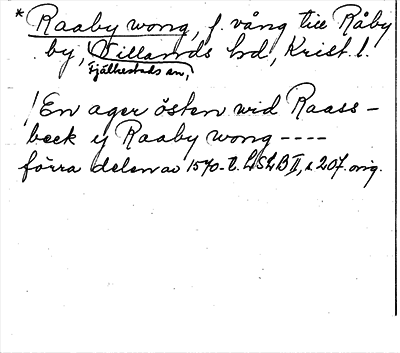 * Raaby wong, f. vång till Råby
by, Villands hd, Krist. l.
Fjälkestads sn,
/En ager östen wid Raass-
beck ij Raaby wong ----
förra delen av 1570-t. LSLB II, s 207. orig.